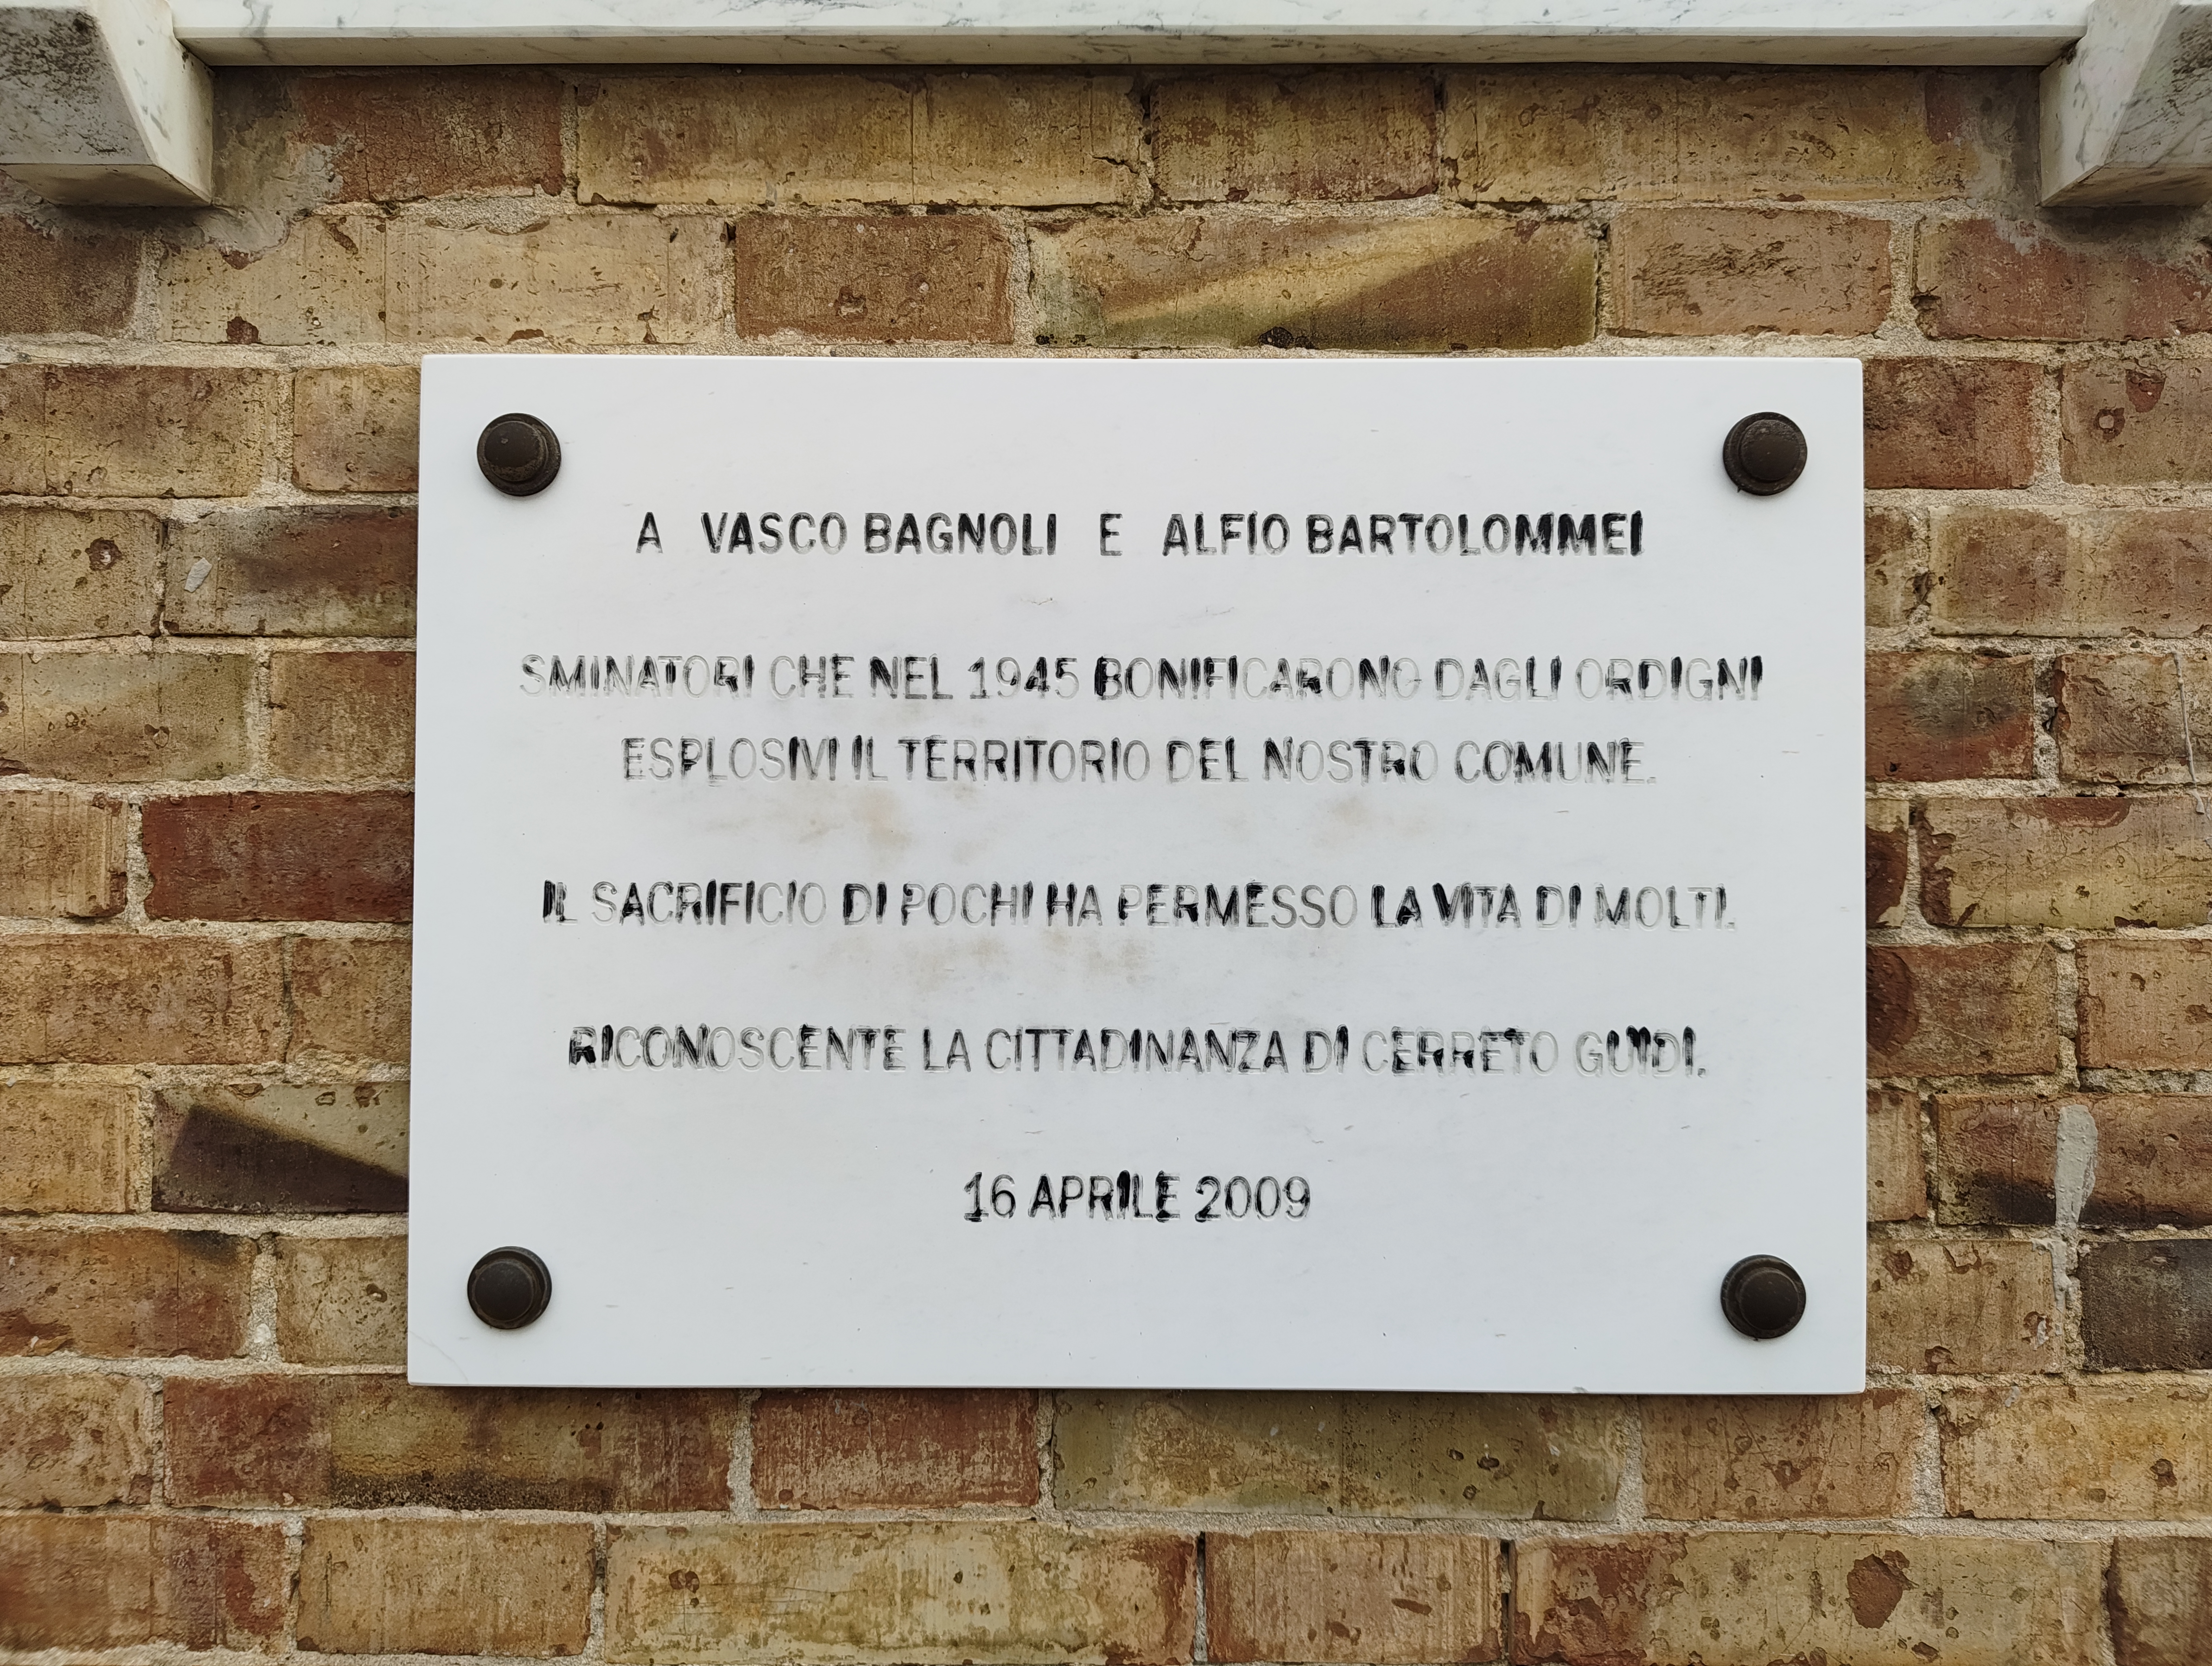 A VASCO BAGNOLI E ALFIO BARTOLOMMEI
SMINATORI CHE NEL 1945 BONIFICARONO DAGLI ORDIGNI
ESPLOSIVI IL TERRITORIO DEL NOSTRO COMUNE.
IL SACRIFICIO DI POCHI HA PERMESSO LA VITA DI MOLTI.
RICONOSCENTE LA CITTADINANZA DI CERRETO GUIDI.
16 APRILE 2009